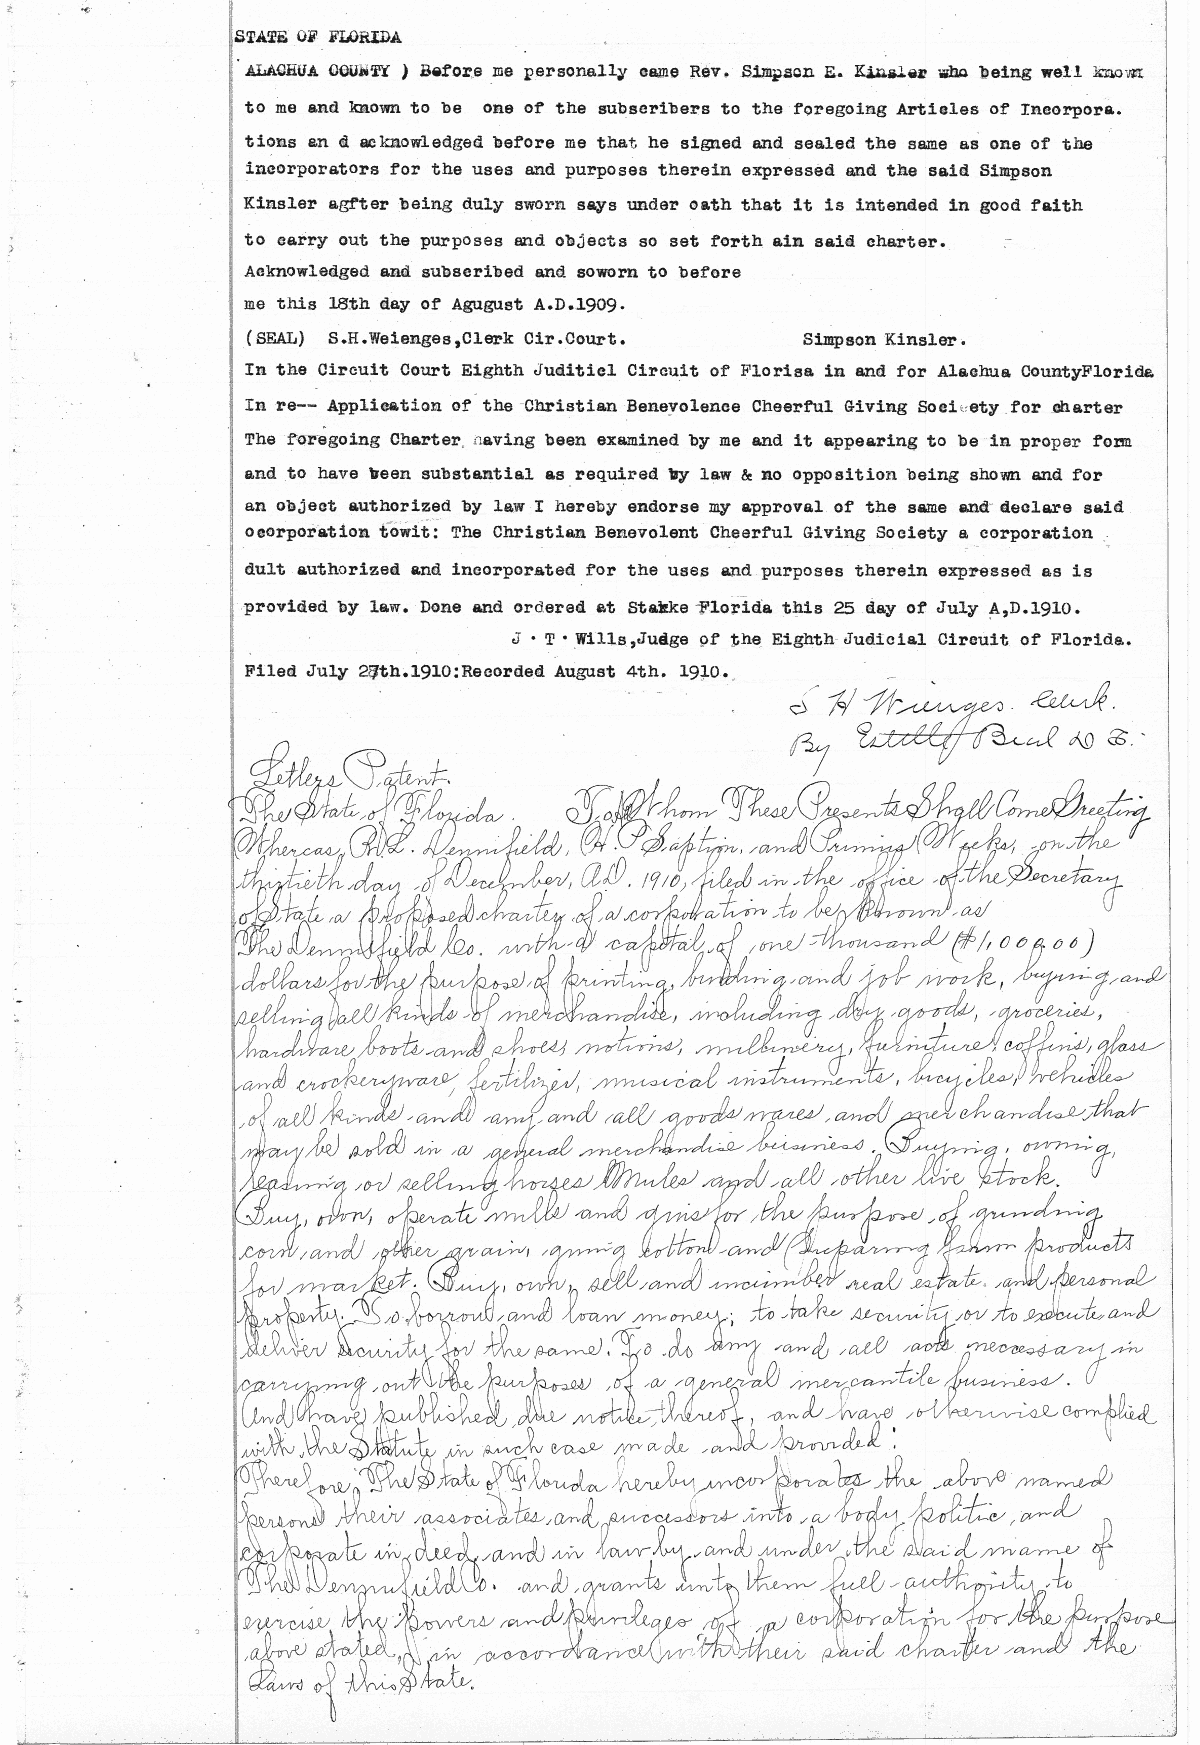 STATE OF FLORIDA
ALACHUA COUNTY ) Before me personally came Rev. Simpson E. Kinsler who being well known
to me and known to be one of the subscribers to the foregoing Articles of Incorpora.
tions an d acknowledged before me that he signed and sealed the same as one of the
incorporators for the uses and purposes therein expressed and the said Simpson
Kinsler agfter being duly sworn says under oath that it is intended in good faith
to carry out the purposes and objects so set forth ain said charter.
Acknowledged and subscribed and soworn to before
me this 18th day of Agugust A.D.1909.
(SEAL) S.H.Weienges,Clerk Cir.Court. Simpson Kinsler.
In the Circuit Court Eighth Juditiel Circuit of Florisa in and for Alachua CountyFlorida
In re-- Application of the Christian Benevolence Cheerful Giving Society for charter
The foregoing Charter having been examined by me and it appearing to be in proper form
and to have been substantial as required by law & no opposition being shown and for
an object authorized by law I hereby endorse my approval of the same and declare said
ocorporation towit: The Christian Benevolent Cheerful Giving Society a corporation
dult authorized and incorporated for the uses and purposes therein expressed as is
provided by law. Done and ordered at Stakke Florida this 25 day of July A,D.1910.
J.T.Wills,Judge of the Eighth Judicial Circuit of Florida.
Filed July 27th.1910:Recorded August 4th. 1910.
S H Wienges. Clerk.
By Estelle Beal D C.
Letters Patent.
The State of Florida. To all Whom These Presents Shall Come Greeting
Whereas, R.L. Dennifield, H. P. and Primus Weeks, on the
thirtieth day of December, A.D. 1910, filed in the office of the Secretary
of State a proposed charter of a corporation to be known as
The Dennifield Co. with a capital of one thousand ($1,000.00)
dollars for the purpose of printing, binding and job work, buying and
selling all kinds of merchandise, including dry goods, groceries,
hardware, boots and shoes, notions, millinery, furniture, coffins, glass
and crockeryware, fertilizer, musical instruments, bicycles, vehicles
of all kinds and any and all goods wares and merchandise that
may be sold in a general merchandise business. Buying, owning,
leasing or selling horses Mules and all other live stock.
Buy, own, operate mills and gins for the purpose of grinding
corn and other grain, gining cotton and preparing farm products
for market. Buy, own, sell and incumber real estate and personal
property. To borrow and loan money; to take security or to execute and
deliver security for the same. To do any and all acts necessary in
carrying out the purposes of a general mercantile business.
And have published due notice thereof, and have otherwise complied
with the Statute in such case made and provided:
Therefore, The State of Florida hereby incorporates the above named
persons their associates and successors into a body politic and
corporate in deed and in law by and under the said name of
The Dennifield Co. and grants unto them full authority to
exercise the powers and privileges of a corporation for the purpose
above stated, in accordance with their said charter and the
Laws of this State.